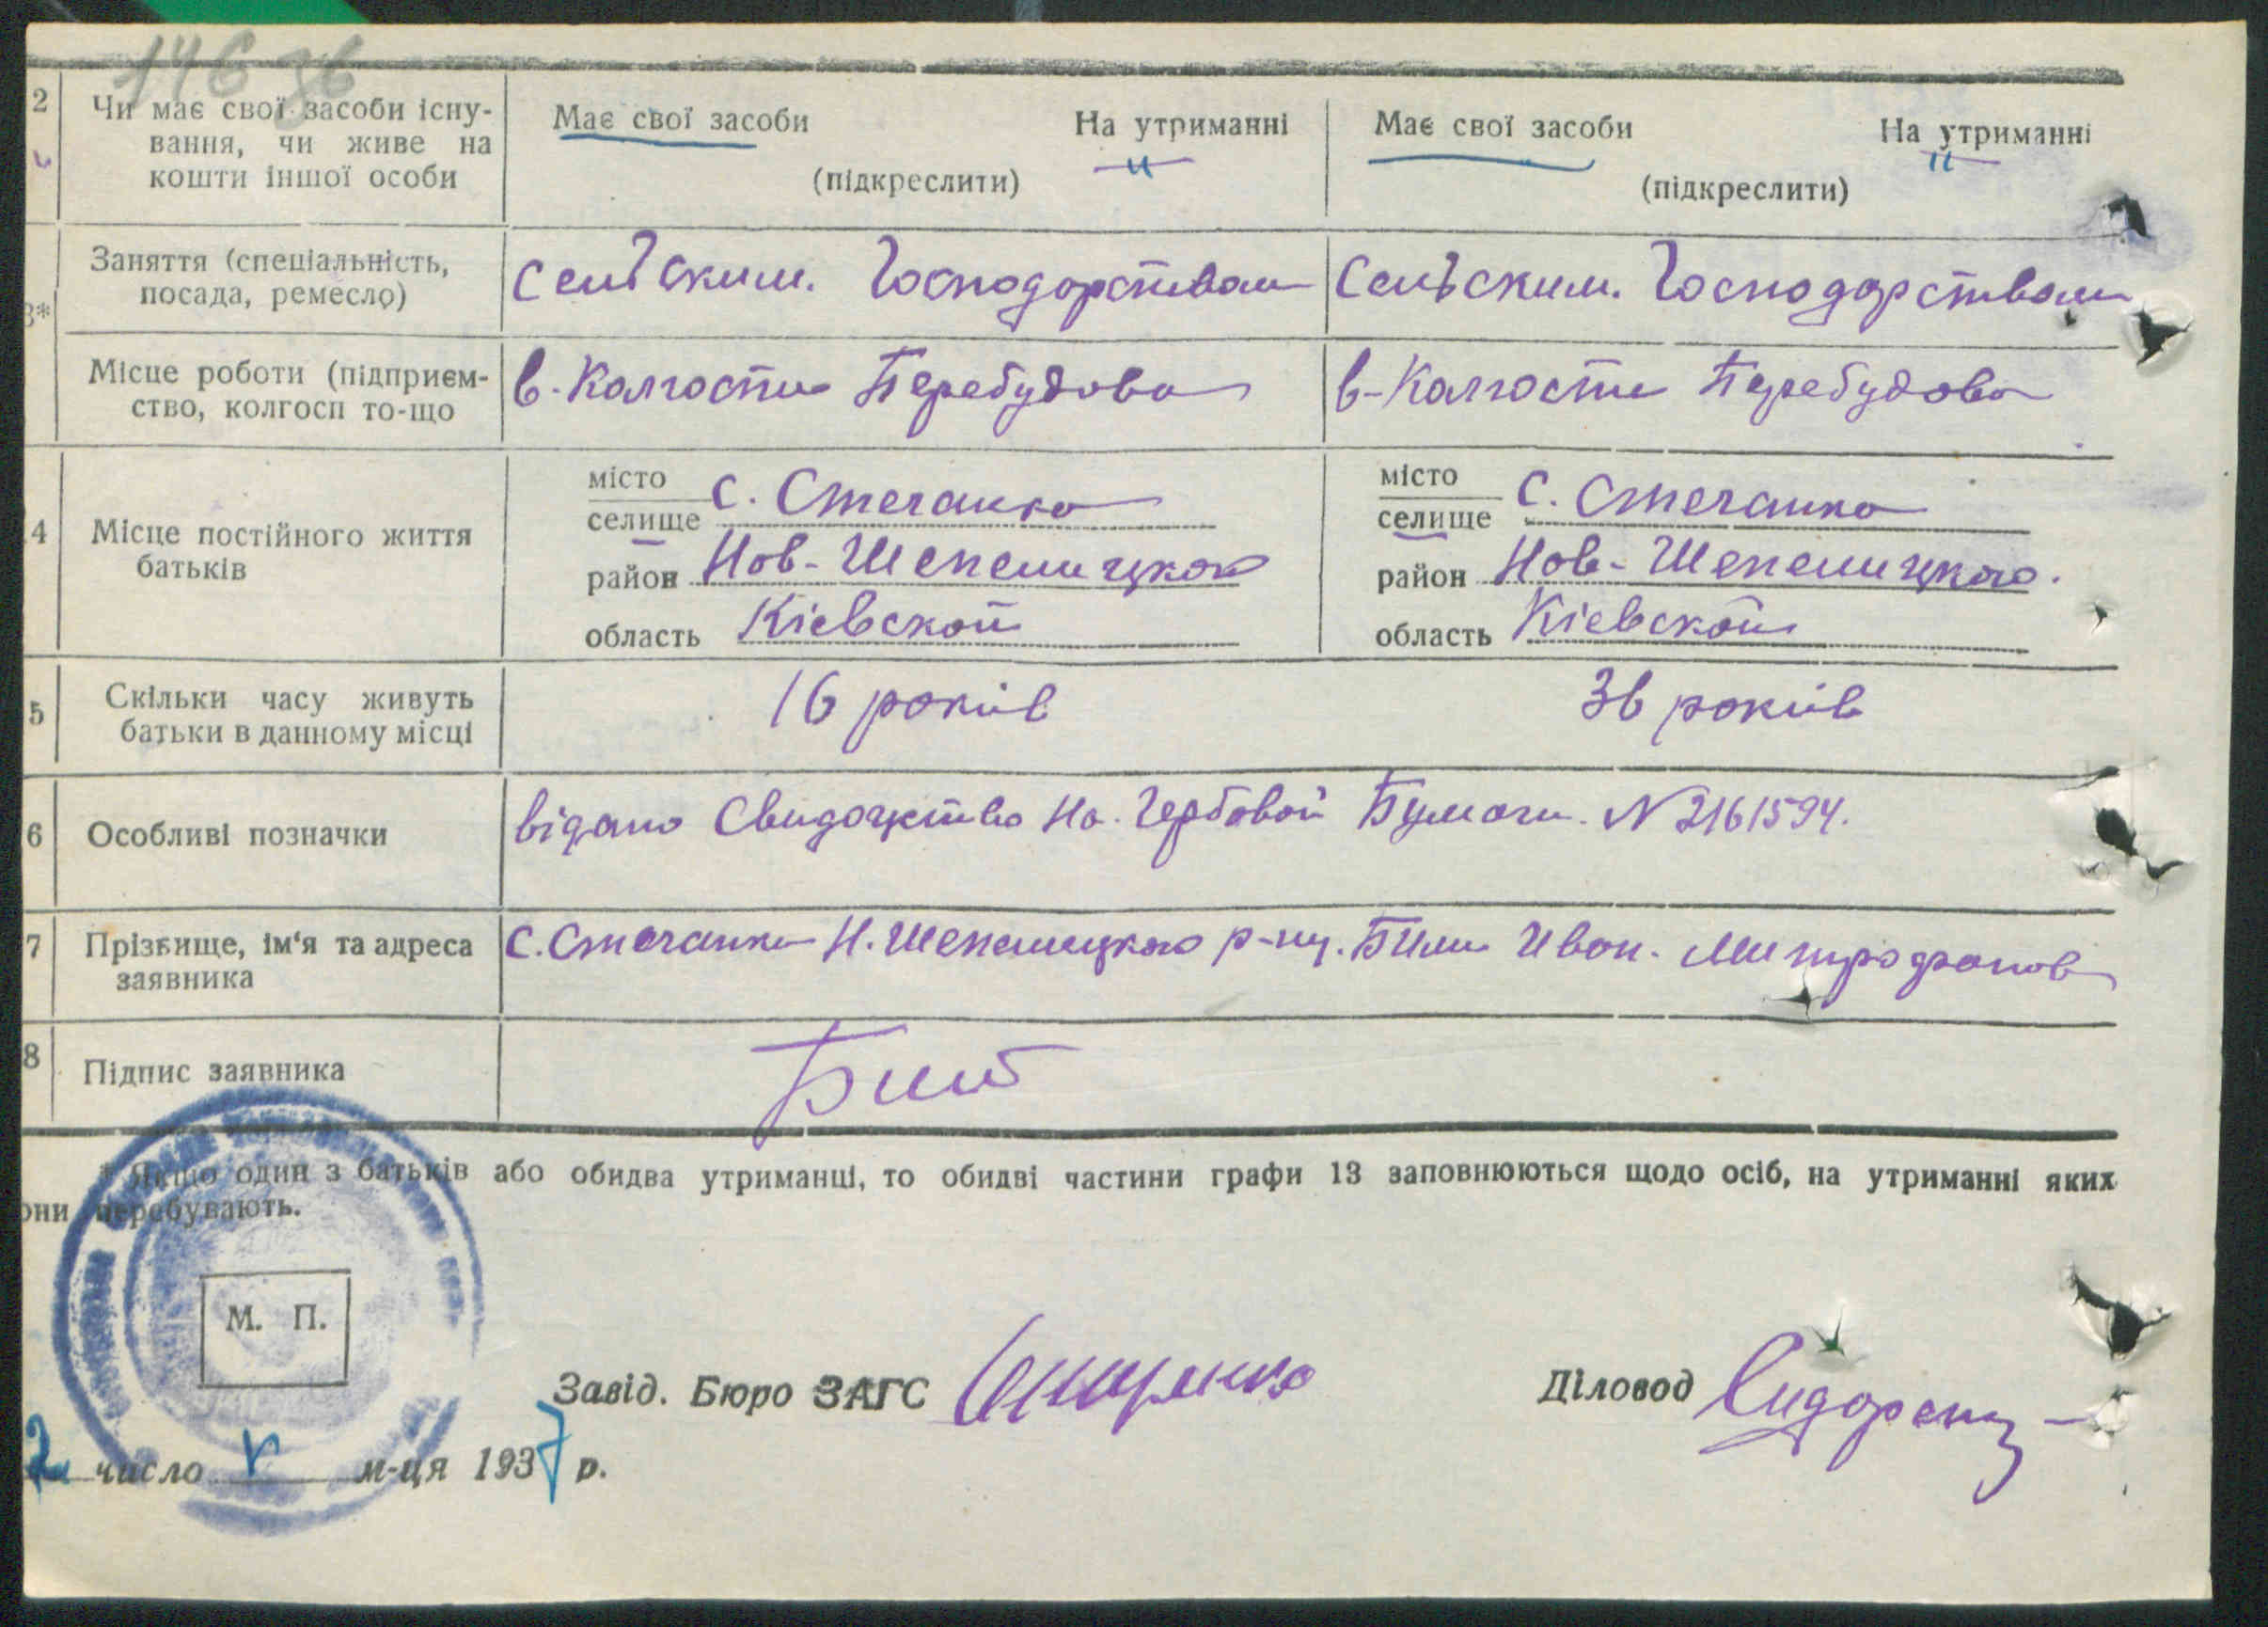 146 36
2 Чи має свої засоби існу- Має свої засоби На утриманні Має свої засоби На утриманні
вання, чи живе на
кошти іншої особи (підкреслити) (підкреслити)
Заняття (спеціальність, Сельским. Господорством Сельским. Господорством
посада, ремесло)
3*
Місце роботи (підприєм- в-Колгоспи Перебудова в-Колгоспи Перебудова
ство, колгосп то-що
місто с. Стечанка місто с. Стечанка
селище селище
4 Місце постійного життя
батьків район Нов-Шепелицкого район Нов-Шепелицкого.
область Кіевской область Кіевской
5 Скільки часу живуть 16 років 36 років
батьки в данному місці
6 Особливі позначки відано Свидоцтво На. Гербовой Бумаги. N 2161594.
7 Прізвище, ім'я та адреса с. Стечанки Н. Шепелицкого р-ну. Били Иван. Митрофанов
заявника
8 Підпис заявника
* Якщо один з батьків або обидва утриманці, то обидві частини графи 13 заповнюються щодо осіб, на утриманні яких
они перебувають.
М. П.
Завід. Бюро ЗАГС Діловод Сидоренко
2 число V м-ця 1937 р.